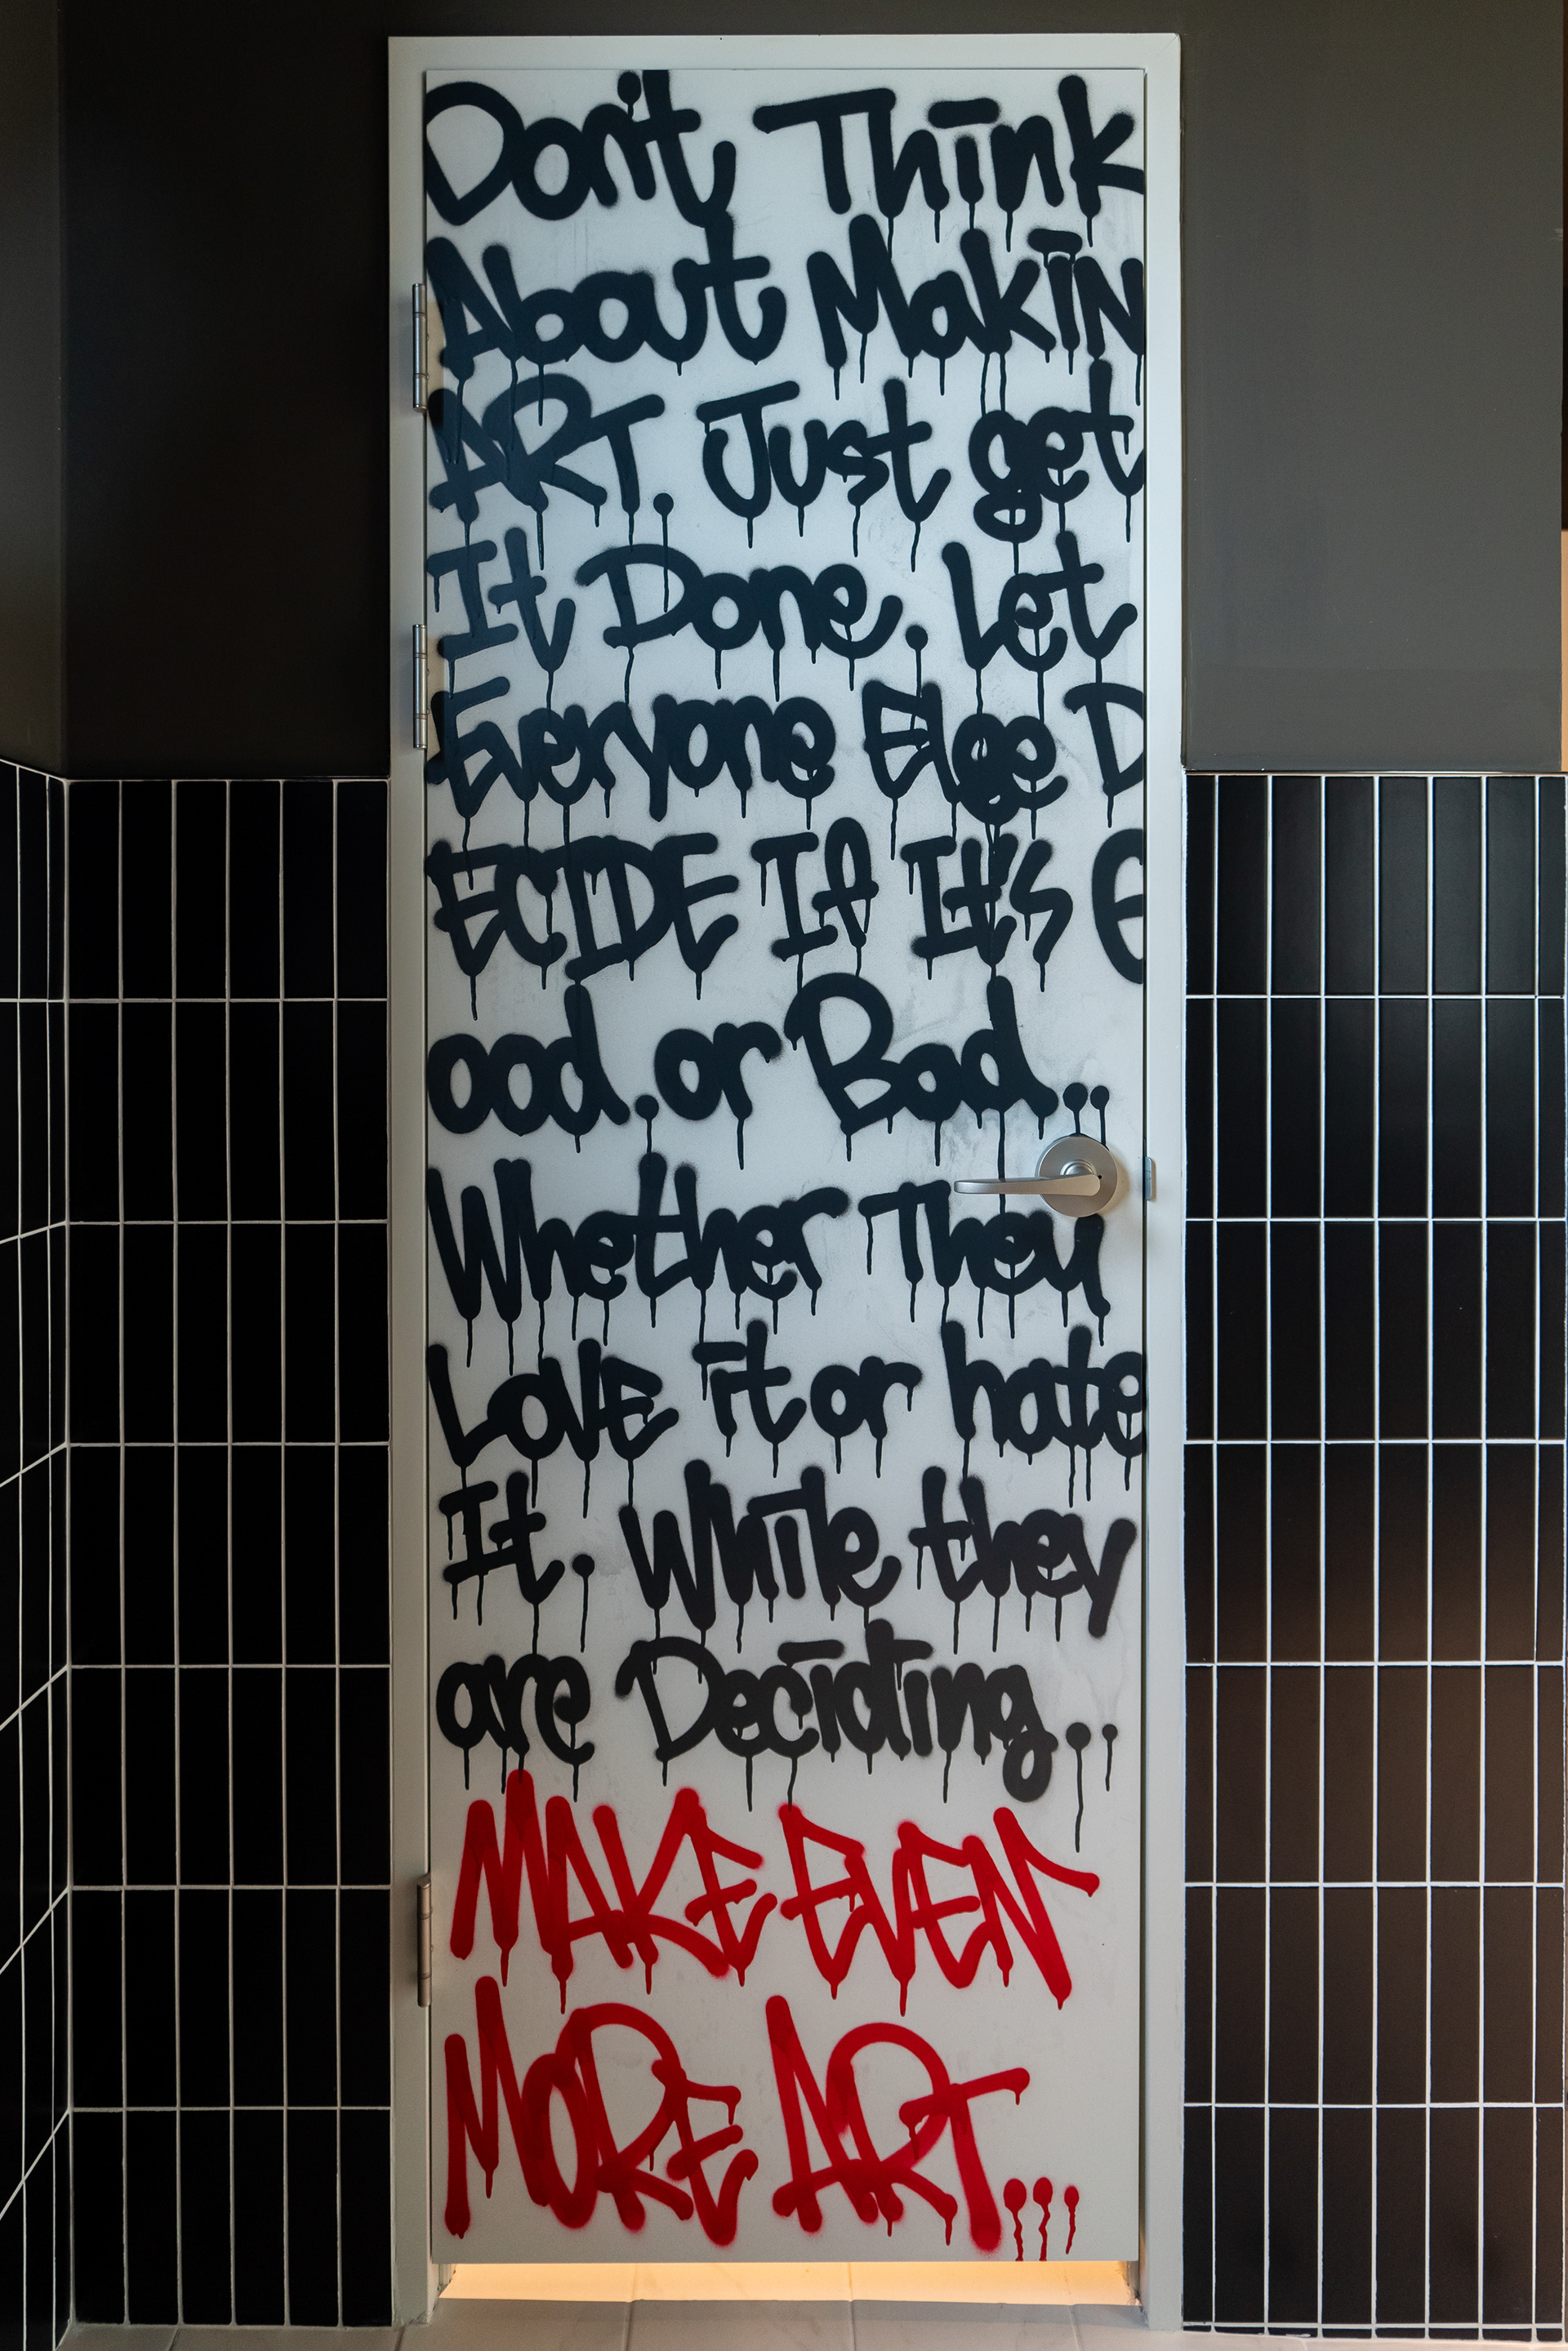 Don't Think
About Makin
ART. Just get
It Done. Let
Everyone Else D
ECIDE If It's G
ood.or Bad..
Whether They
LOVE it or hate
It. While they
are Deciding..
MAKE EVEN
MORE ART...